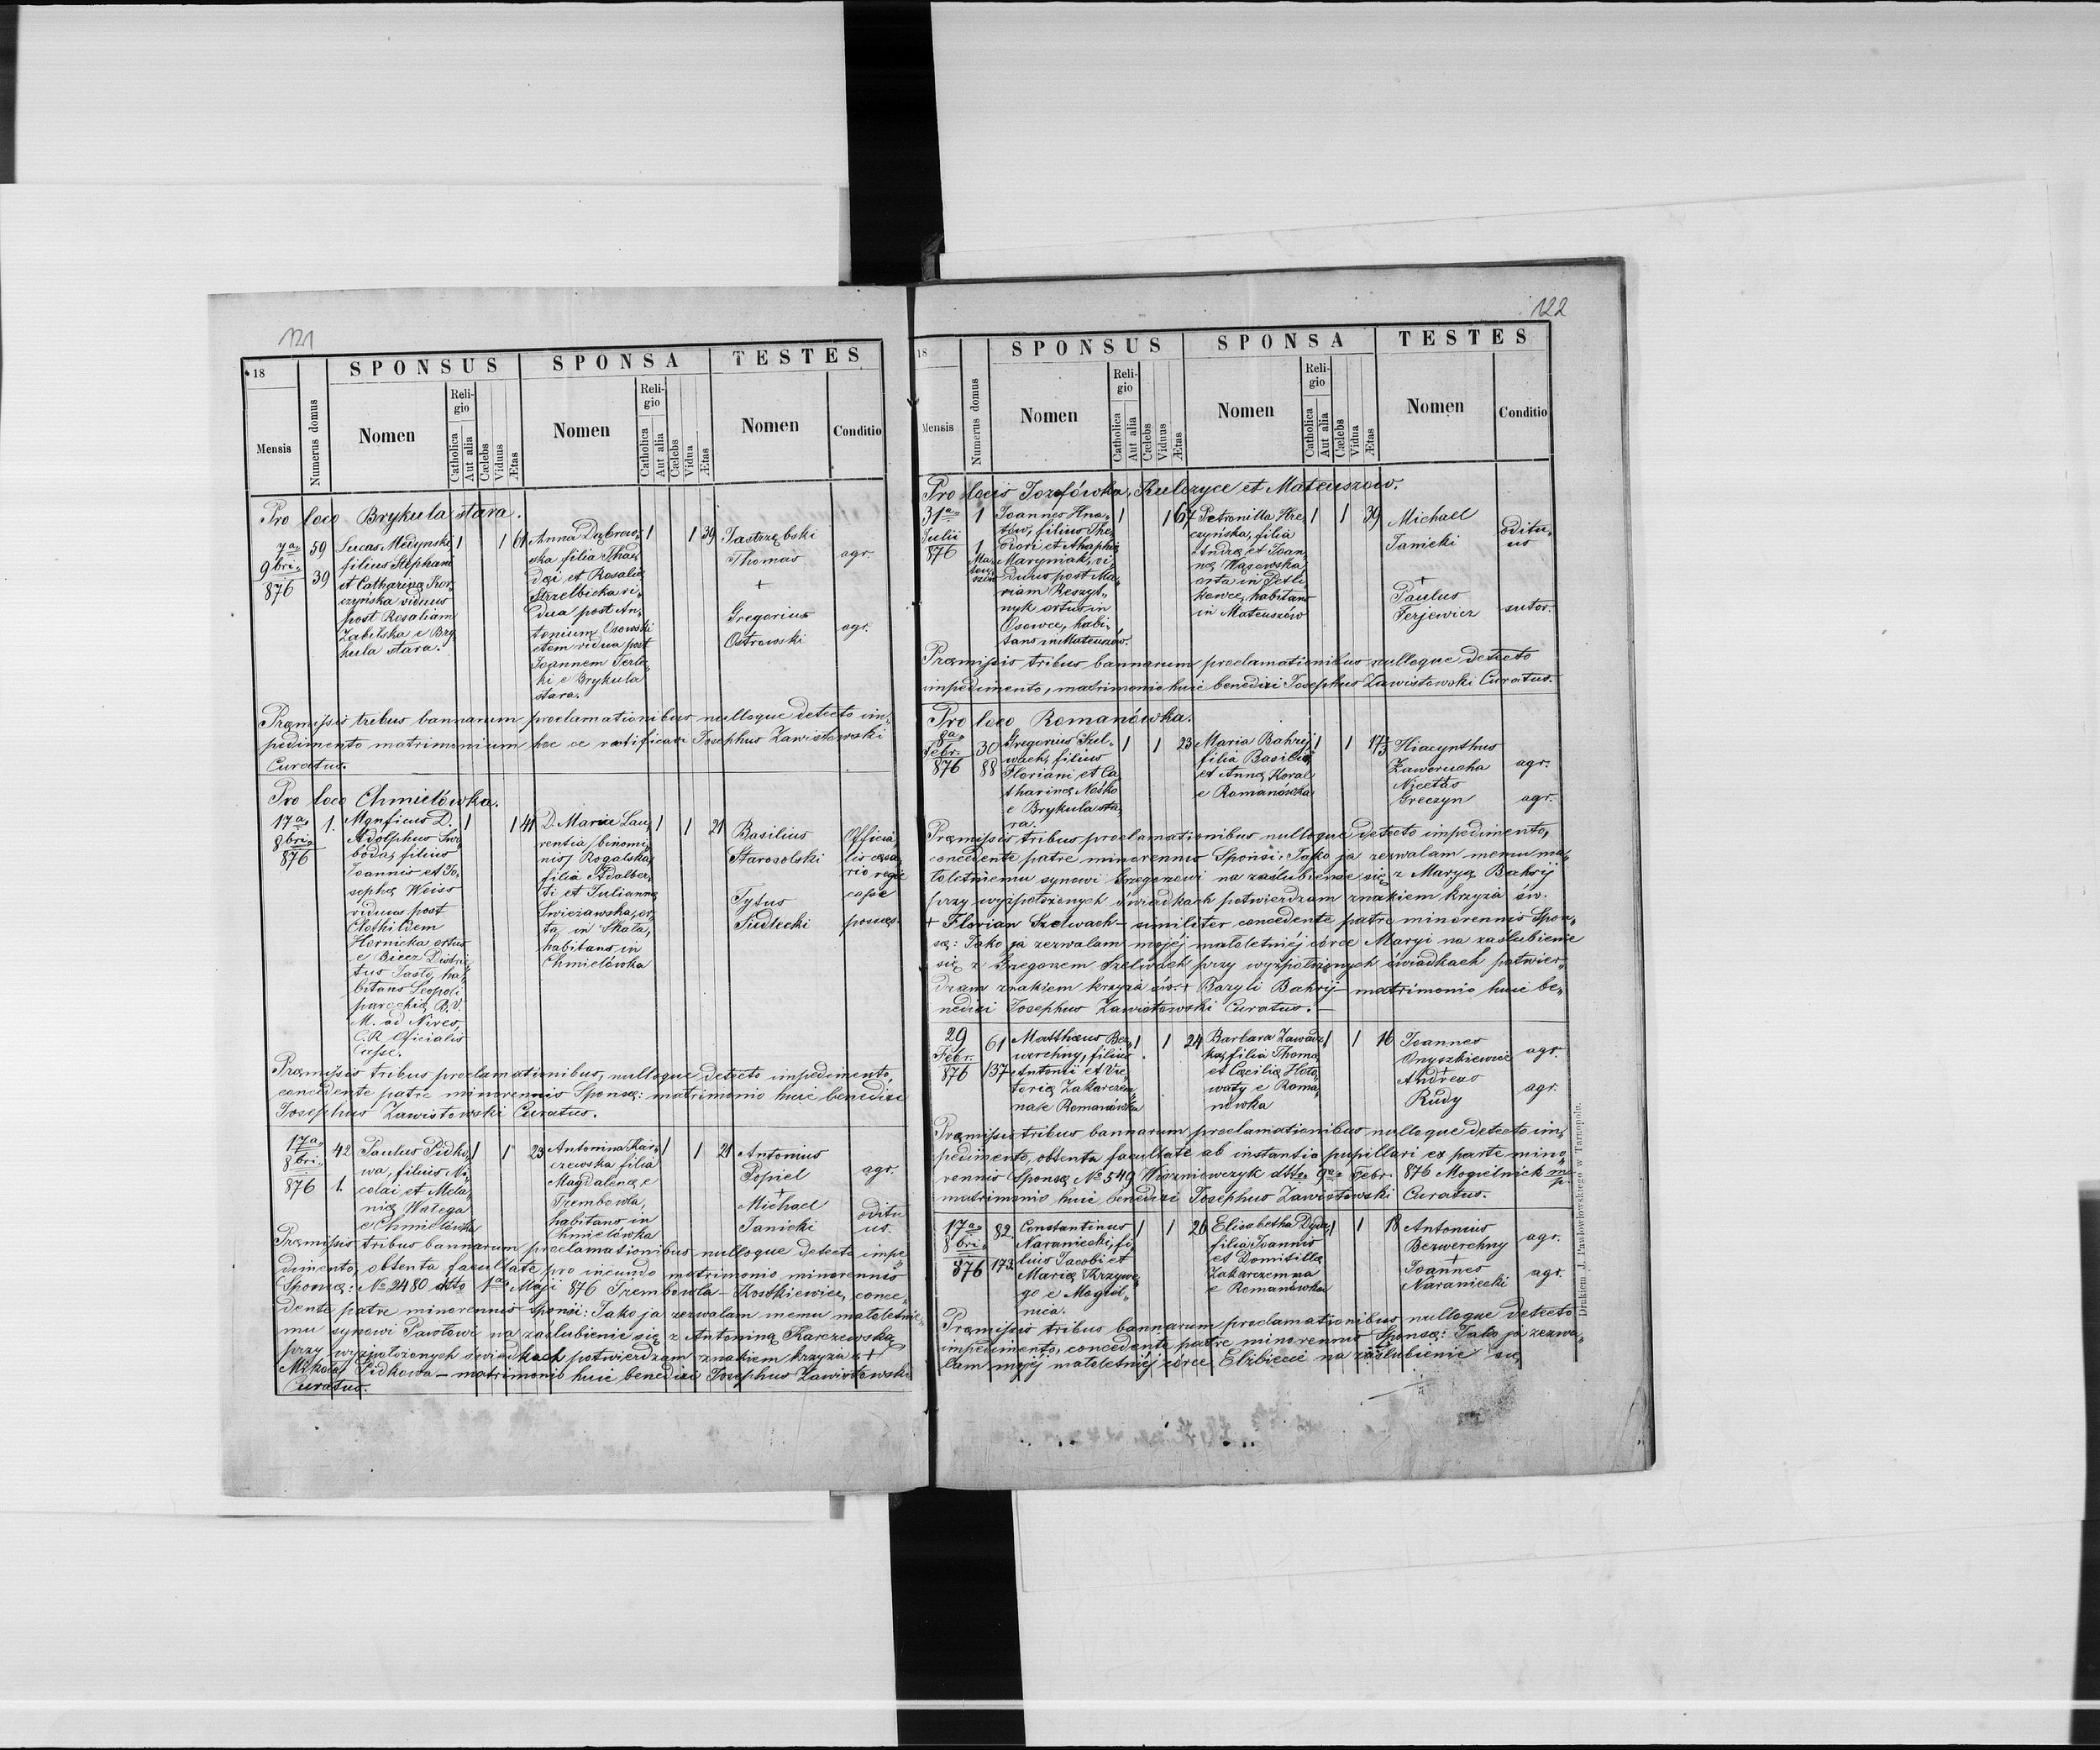 121
18
SPONSUS SPONSA TESTES
Mensis Numerus domus Nomen Religio Catholica Aut alia Cælebs Viduus Ætas Nomen Religio Catholica Aut alia Cælebs Vidua Ætas Nomen Conditio
Pro loco Brykula stara.
7a 9bri. 876
59
39
Lucas Medynski
filius Stephani
et Catharinę Kor„
czyńska viduus
post Rosaliam
Zabilska e Bry
kula stara.
1 1 61
Anna Dąbrow„
ska filia Thad
dęi et Rosalię
Strzelbicka vi„
dua post An„
tonium Osowski
etem vidua post
Joannem Terle„
ki e Brykula
stara.
1 1 39
Jastrzębski
Thomas
agr.
+
Gregorius
Ostrowski
agr.
Pręmissis tribus bannarum proclamationibus nulloque detecto im„
pedimento matrimonium hoc ce ratificavi Josephus Zawistowski
Curatus.
Pro loco Chmielówka.
17a 8bri. 876
1.
Mgnficus D.
Adolphus Swo
boda, filius
Joannis et Jo„
sephę Weiss
viduus post
Clothildem
Hornicka ortus
e Biecz Distric
tus Jasło, ha„
bitans Leopoli
parochię B.V.
M. ad Nives,
C.R. Oficialis
Cassę.
1 1 41
D. Maria Lau„
rentia, binomi„
nis, Rogalska,
filia Adalber„
ti et Juliannę
Swieżawska, or„
ta in Skala,
habitans in
Chmielówka
1 1 21
Basilius
Starosolski
Officia„
lis cęsa„
reo regię
cassę
Tytus
Siedlecki
posses.
Pręmissis tribus proclamationibus, nulloque detecto impedimento,
concedente patre minorennis Sponsę: matrimonio huic benedixi
Josephus Zawistowski Curatus.
17a 8bri. 876
42
1.
Paulus Pidko„
wa, filius Ni„
colai et Mela„
nię Walega
e Chmielówka
1 1 23
Antonina Kar„
czewska filia
Magdalenę e
Trembowla,
habitans in
Chmielówka
1 1 21
Antonius
Popiel
agr.
+
Michael
Janicki
oditu
us.
Pręmissis tribus bannarum proclamationibus nulloque detecto impe„
dimento, obtenta facultate pro incundo matrimonio minorennis
Sponsę: No 2480 ddto 1a Maji 876 Trembowla – Koszkiewicz, conce„
dente patre minorennis Sponsi: Jako ja zezwalam memu małoletnie„
mu synowi Pawłowi na zaślubienie się z Antoniną Karczewską
przy wyżpołożonych świadkach potwierdzam znakiem krzyża +
Mikołaj Pidkowa – matrimonio huic benedixi Josephus Zawistowski
Curatus.
122
18
SPONSUS SPONSA TESTES
Mensis Numerus domus Nomen Religio Catholica Aut alia Cælebs Viduus Ætas Nomen Religio Catholica Aut alia Cælebs Vidua Ætas Nomen Conditio
Pro locis Jozefówka, Kulczyce et Mateuszow.
31a Julii 876
1
1
Ma„
teu„
szów
Joannes Hna„
tów, filius The„
odori et Ahaphię
Maryniak, vi„
duus post Ma„
riam Reszyt„
nyk ortus in
Osowce, habi„
tans in Mateuszów.
1 1 67
Petronilla Kre„
czyńska, filia
Andrę et Joan„
nę Wąsowska,
orta in Petli„
kowce, habitans
in Mateuszów
1 1 39
Michael
Janicki
oditu„
us
+
Paulus
Ferjewicz
sutor.
Pręmissis tribus bannarum proclamationibus nulloque detecto
impedimento, matrimonio huic benedixi Josephus Zawistowski Curatus.
Pro loco Romanówka.
8a Febr. 876
30
88
Gregorius Szel„
wach, filius
Floriani et Ca„
tharinę Nośko
e Brykula sta„
ra.
1 1 23
Maria Bahrij
filia Basilii
et Annę Koral
e Romanówka
1 1 17½
Hiacynthus
Zawerucha
agr.
Nicetas
Greczyn
agr.
Pręmissis tribus proclamationibus nulloque detecto impedimento,
concedente patre minorennis Sponsi: Jako ja zezwalam memu ma„
łoletniemu synowi Grzegorzowi na zaślubienie się z Maryą Bahrij
przy wyżpołożonych świadkach potwierdzam znakiem krzyża św.
+ Floryan Szelwach – similiter concedente patre minorennis Spon„
sę: Jako ja zezwalam mojéj małoletniéj córce Maryi na zaślubienie
się z Grzegorzem Szelwach przy wyżpołożonych świadkach potwier„
dzam znakiem krzyża św. + Bazyli Bahrij – matrimonio huic be„
nedixi Josephus Zawistowski Curatus. –
29 Febr. 876
61
137
Matthæus Bez„
werchny, filius
Antonii et Vic„
torię Zakarczem
na e Romanówka
1 1 24
Barbara Zawadz
ka, filia Thomę
et Cęcilię Holo„
waty e Roma„
nówka
1 1 16
Joannes
Onyszkiewicz
agr.
+
Andreas
Rudy
agr.
Pręmissis tribus bannarum proclamationibus nulloque detecto im„
pedimento, obtenta facultate ab instantia pupillari ex parte mino„
rennis Sponsę No 549 Wiszniewczyk ddto 9a Febr. 876 Mogielnick mp
matrimonio huic benedixi Josephus Zawistowski Curatus.
17a 8bri. 876
82.
173.
Constantinus
Naraniecki, fi„
lius Jacobi et
Marię Krzywe„
go e Mogiel„
nica.
1 1 26
Elisabetha Dyda,
filia Joannis
et Domitillę
Zakarczemna
e Romanówka
1 1 18
Antonius
Bezwerchny
agr.
+
Joannes
Naraniecki
agr.
Pręmissis tribus bannarum proclamationibus nulloque detecto
impedimento, concedente patre minorennis Sponsę: Jako ja zezwa„
lam mojéj małoletniéj córce Elżbiecie na zaślubienie się
Drukiem J. Pawłowskiego w Tarnopolu.